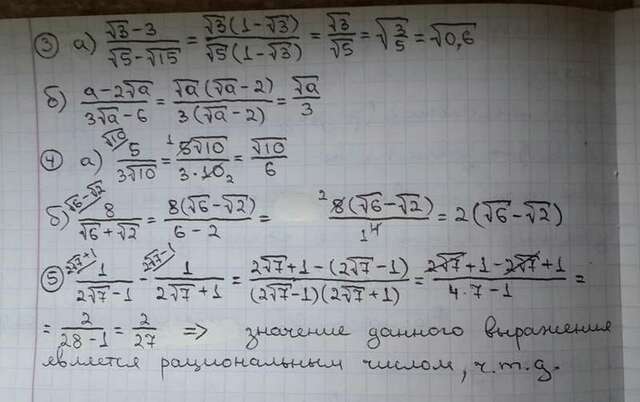 ③ а) (√3 − 3)/(√5 − √15) = (√3(1 − √3))/(√5(1 − √3)) = √3/√5 = √(3/5) = √0,6
б) (a − 2√a)/(3√a − 6) = (√a(√a − 2))/(3(√a − 2)) = √a/3
④ а) 5/(3√10) ^(√10/ = ¹5√10/(3·10₂) = √10/6
б) 8/(√6 + √2) ^(√6−√2/ = 8(√6 − √2)/(6 − 2) = ²8(√6 − √2)/₁4 = 2(√6 − √2)
⑤ 1/(2√7 − 1) ^(2√7+1/ − 1/(2√7 + 1) ^(2√7−1/ = (2√7 + 1 − (2√7 − 1))/((2√7 − 1)(2√7 + 1)) = (2√7 + 1 − 2√7 + 1)/(4·7 − 1) =
= 2/(28 − 1) = 2/27 => значение данного выражения
является рациональным числом, ч.т.д.